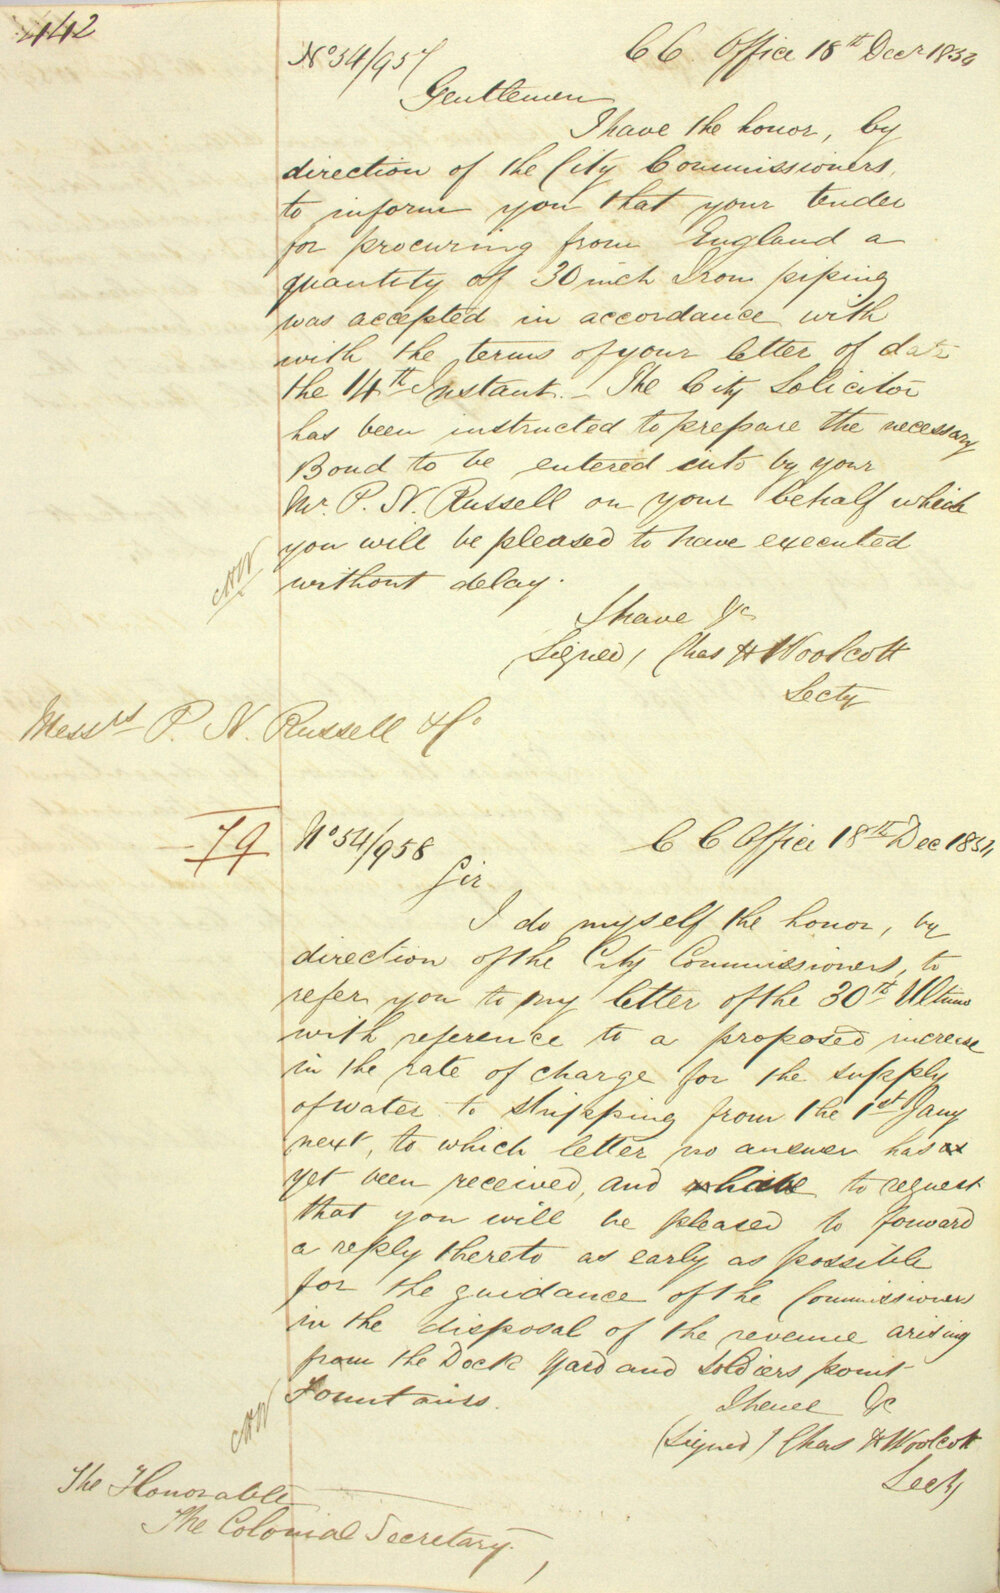 442
No 54/957
C C. Office 18th Decr 1854
Gentlemen
I have the honor, by
direction of the City Commissioners,
to inform you that your tender
for procuring from England a
quantity of 30 inch Iron piping
was accepted in accordance with
with the terms of your letter of date
the 14th Instant. - The City Solicitor
has been instructed to prepare the necessary
Bond to be entered into by your
Mr. P. N. Russell on your behalf which
you will be pleased to have executed
without delay.
CHW
I have &c
Signed) Chas H Woolcott
Secty
Messrs P. N. Russell & Co
79
No 54/958
C C Office 18th Dec 1854
Sir
I do myself the honor, by
direction of the City Commissioners, to
refer you to my letter of the 30th Ultimo
with reference to a proposed increase
in the rate of charge for the supply
of water to Shipping from the 1st Jany
next, to which letter no answer has as
yet been received, and to request
that you will be pleased to forward
a reply thereto as early as possible
for the guidance of the Commissioners
in the disposal of the revenue arising
from the Dock Yard and Soldiers point
Fountains.
CHW
I have &c
(Signed) Chas H Woolcott
Secty
The Honorable
The Colonial Secretary